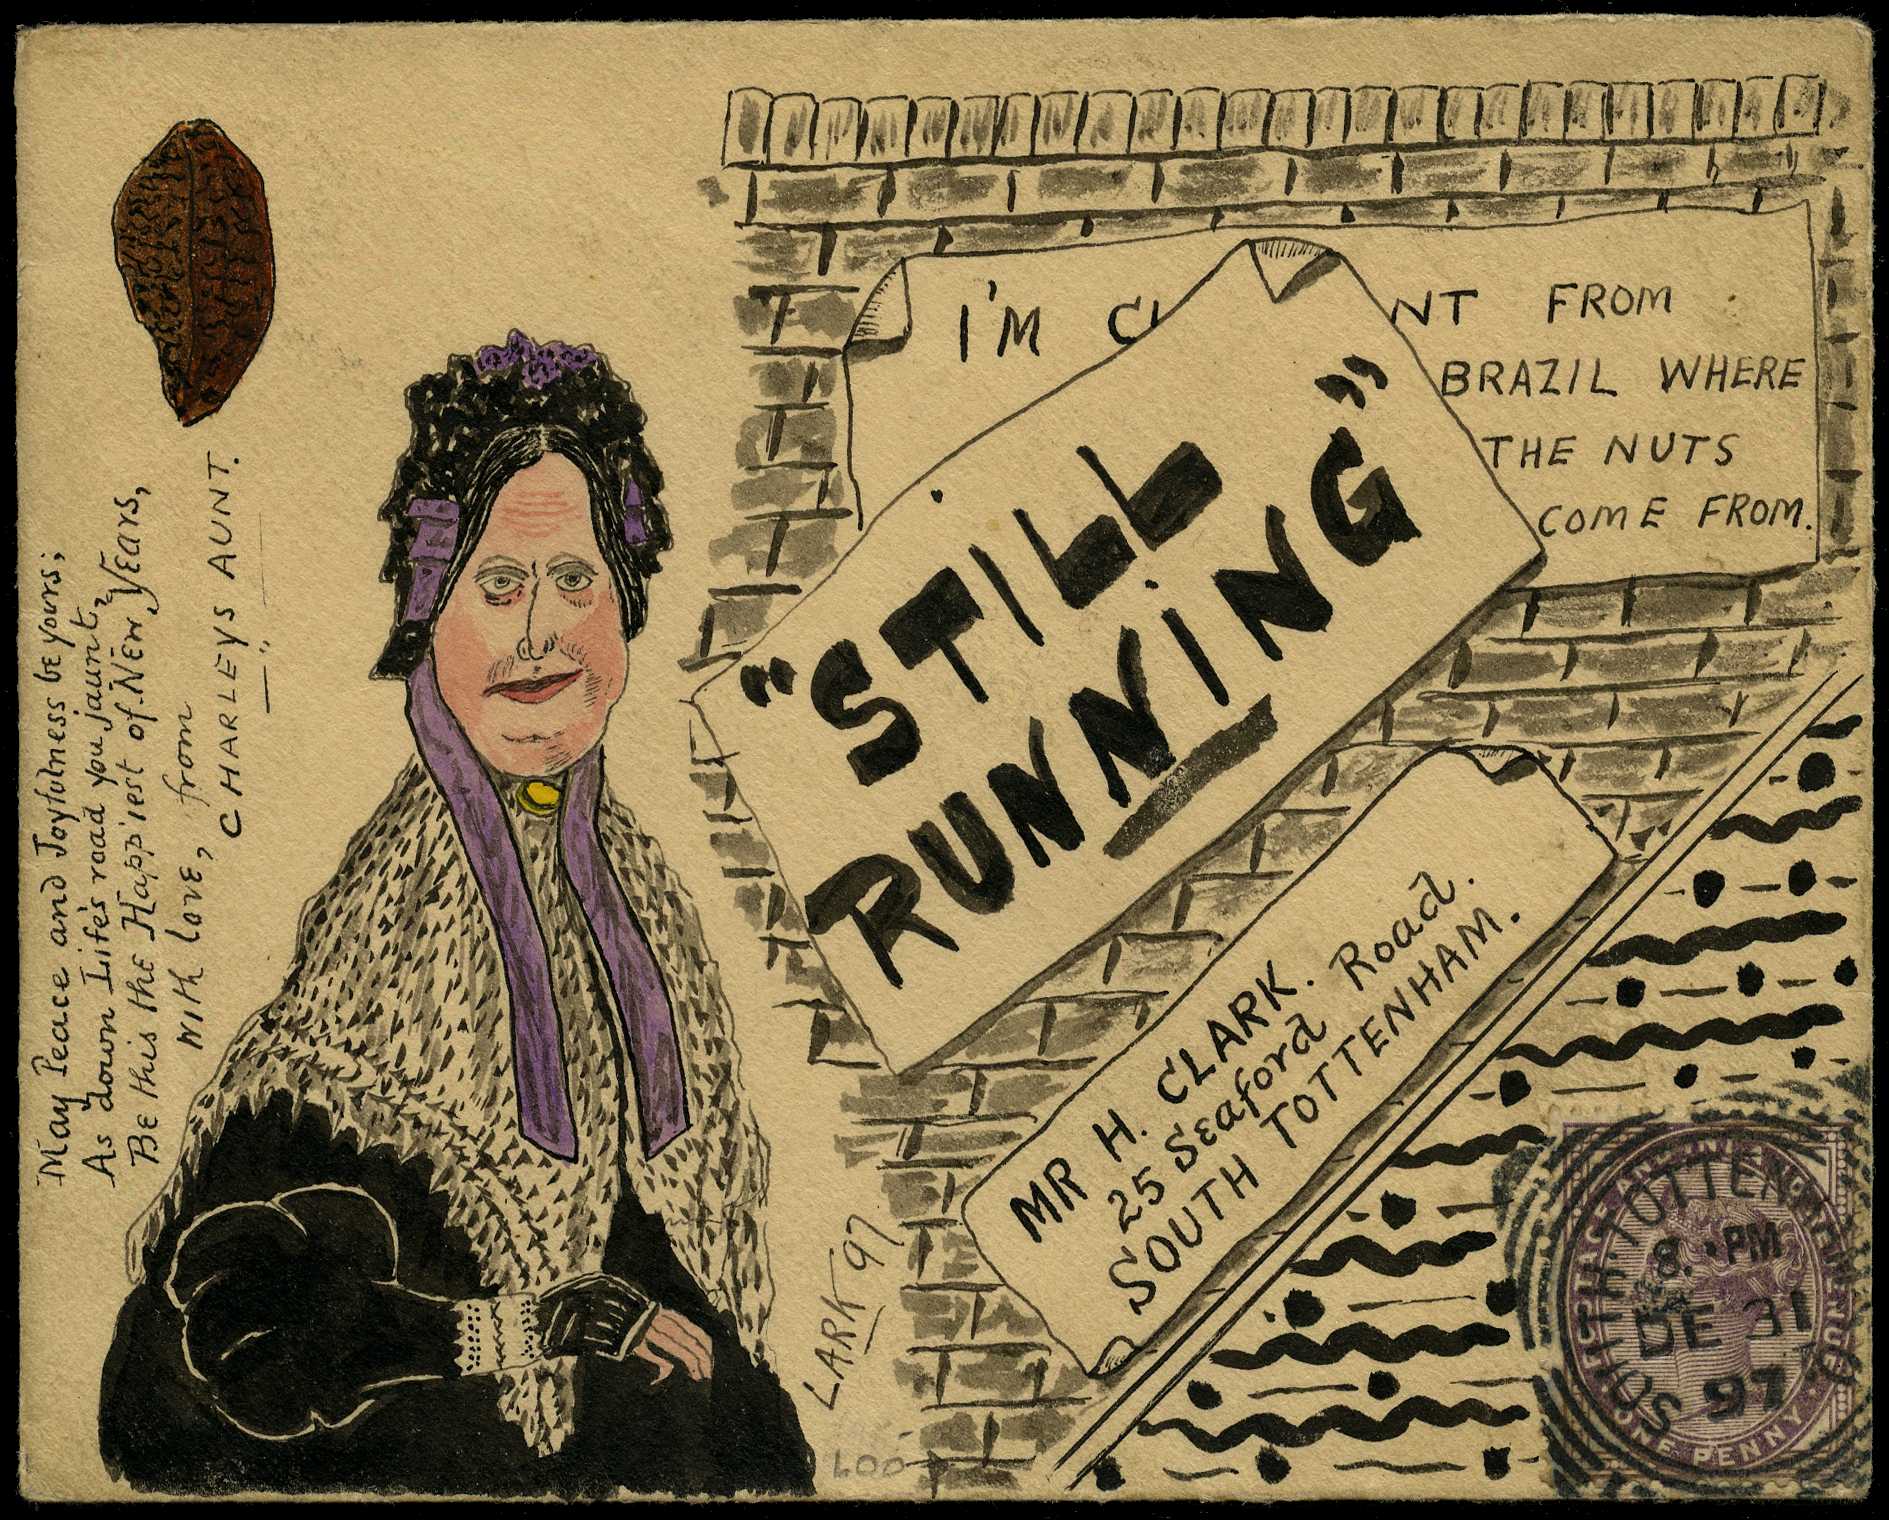 May Peace and Joyfulness be yours;
As down Life's road you jaunt,
Be this the Happiest of New Years,
With love, from
CHARLEYS AUNT.
I'M NT FROM
BRAZIL WHERE
THE NUTS
COME FROM.
"STILL
RUNNING"
MR H. CLARK.
25 Seaford Road.
SOUTH TOTTENHAM.
LARK 97
STH. TOTTENHAM
8. PM
DE 31
97
ONE PENNY